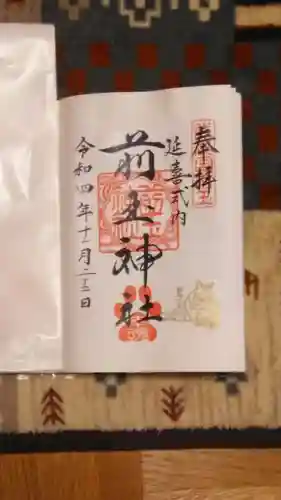 奉拝
延喜式内
前玉神社
令和四年十二月二五日